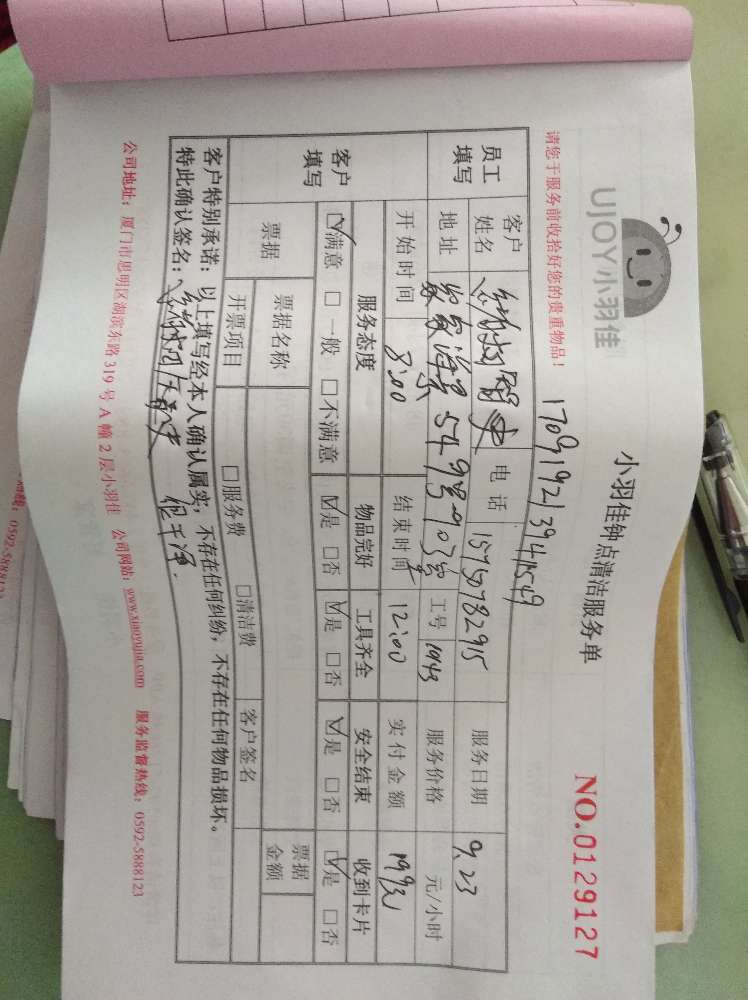 UJOY小羽佳
小羽佳钟点清洁服务单
NO.0129127
请您于服务前收拾好您的贵重物品！
170919213941549
员工填写 客户姓名 电话 15750782915 服务日期 9.23
地址 549号703室 工号 1943 服务价格 元/小时
开始时间 8:00 结束时间 12:00 实付金额
客户填写 服务态度 物品完好 工具齐全 安全结束 收到卡片
☑满意 □一般 □不满意 ☑是 □否 ☑是 □否 ☑是 □否 ☑是 □否
票据 票据名称 票据金额
开票项目 □服务费 □清洁费 客户签名
客户特别承诺：以上填写经本人确认属实，不存在任何纠纷，不存在任何物品损坏。
特此确认签名： 很干净.
公司地址：厦门市思明区湖滨东路319号A幢2层小羽佳 公司网站：www.xiaoyujia.com 服务监督热线：0592-5888123
0592-5888123